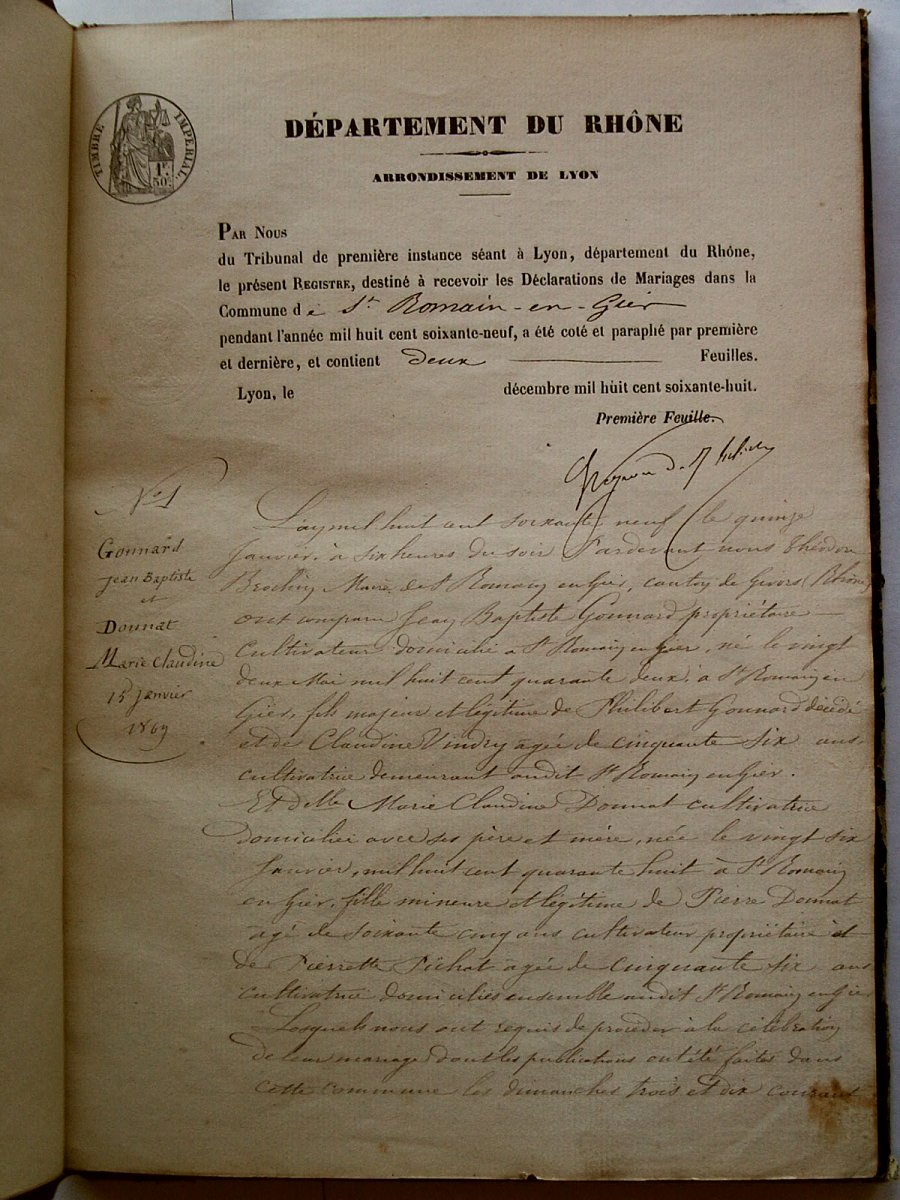 TIMBRE IMPÉRIAL
1F.
50c.
DÉPARTEMENT DU RHÔNE
ARRONDISSEMENT DE LYON
PAR NOUS
du Tribunal de première instance séant à Lyon, département du Rhône,
le présent REGISTRE, destiné à recevoir les Déclarations de Mariages dans la
Commune de St Romain-en-Gier
pendant l'année mil huit cent soixante-neuf, a été coté et paraphé par première
et dernière, et contient deux Feuilles.
Lyon, le décembre mil huit cent soixante-huit.
Première Feuille.
No 1
Gonnard
Jean Baptiste
et
Donnat
Marie Claudine
15 janvier
1869
L'an mil huit cent soixante neuf le quinze
Janvier, à six heures du soir Pardevant nous Théodore
Maire de St Romain en Gier, canton de Givors (Rhône)
ont comparu Jean Baptiste Gonnard propriétaire
cultivateur domicilié à St Romain en Gier, né le vingt
deux Mai mil huit cent quarante deux, à St Romain en
Gier, fils majeur et légitime de Philibert Gonnard décédé
et de Claudine Vindry agée de cinquante six ans,
cultivatrice demeurant audit St Romain en Gier.
Et Delle Marie Claudine Donnat cultivatrice
domiciliée avec ses père et mère, née le vingt six
Janvier, mil huit cent quarante huit à St Romain
en Gier, fille mineure et légitime de Pierre Donnat
agé de soixante cinq ans cultivateur propriétaire et
de Pierrette Pichat agée de cinquante six ans
cultivatrice domiciliés ensemble audit St Romain en Gier
Lesquels nous ont requis de procéder à la célébration
de leur mariage dont les publications ont été faites dans
cette commune les dimanches trois et dix courant